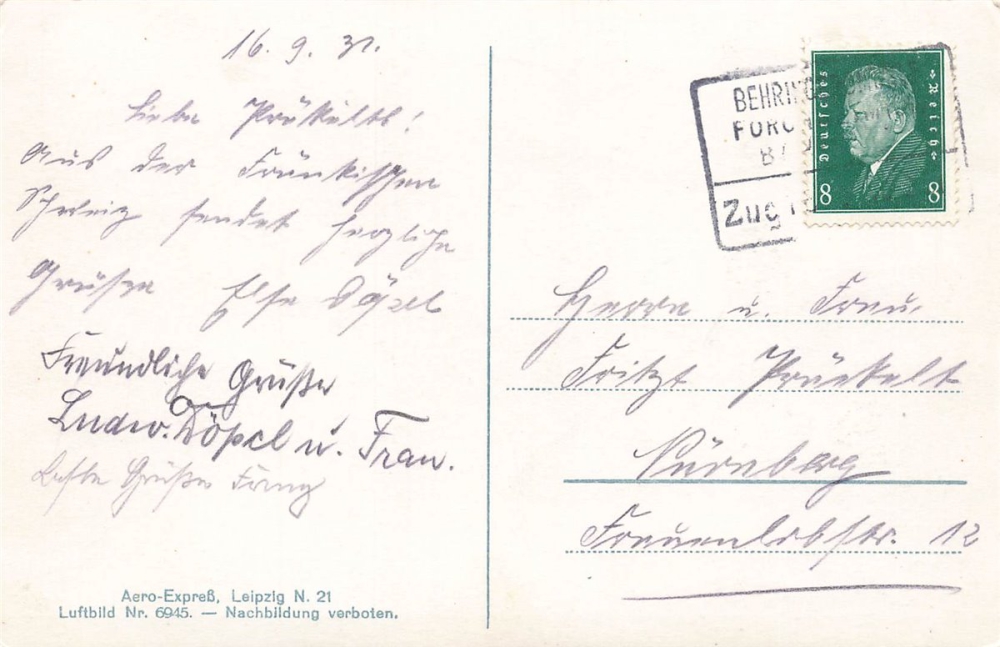 16. 9. 31.
Liebe Prökelts!
Aus der Fränkischen
Schweiz sendet herzliche
Grüße Else Döpel
Freundliche Grüße
Ludw. Döpel u. Frau.
Beste Grüße Franz
Aero-Expreß, Leipzig N. 21
Luftbild Nr. 6945. — Nachbildung verboten.
BEHRING
FORC
Zug
Deutsches Reich
8 8
Herrn u. Frau
Fritz Prökelt
Nürnberg
Frauenlobstr. 12